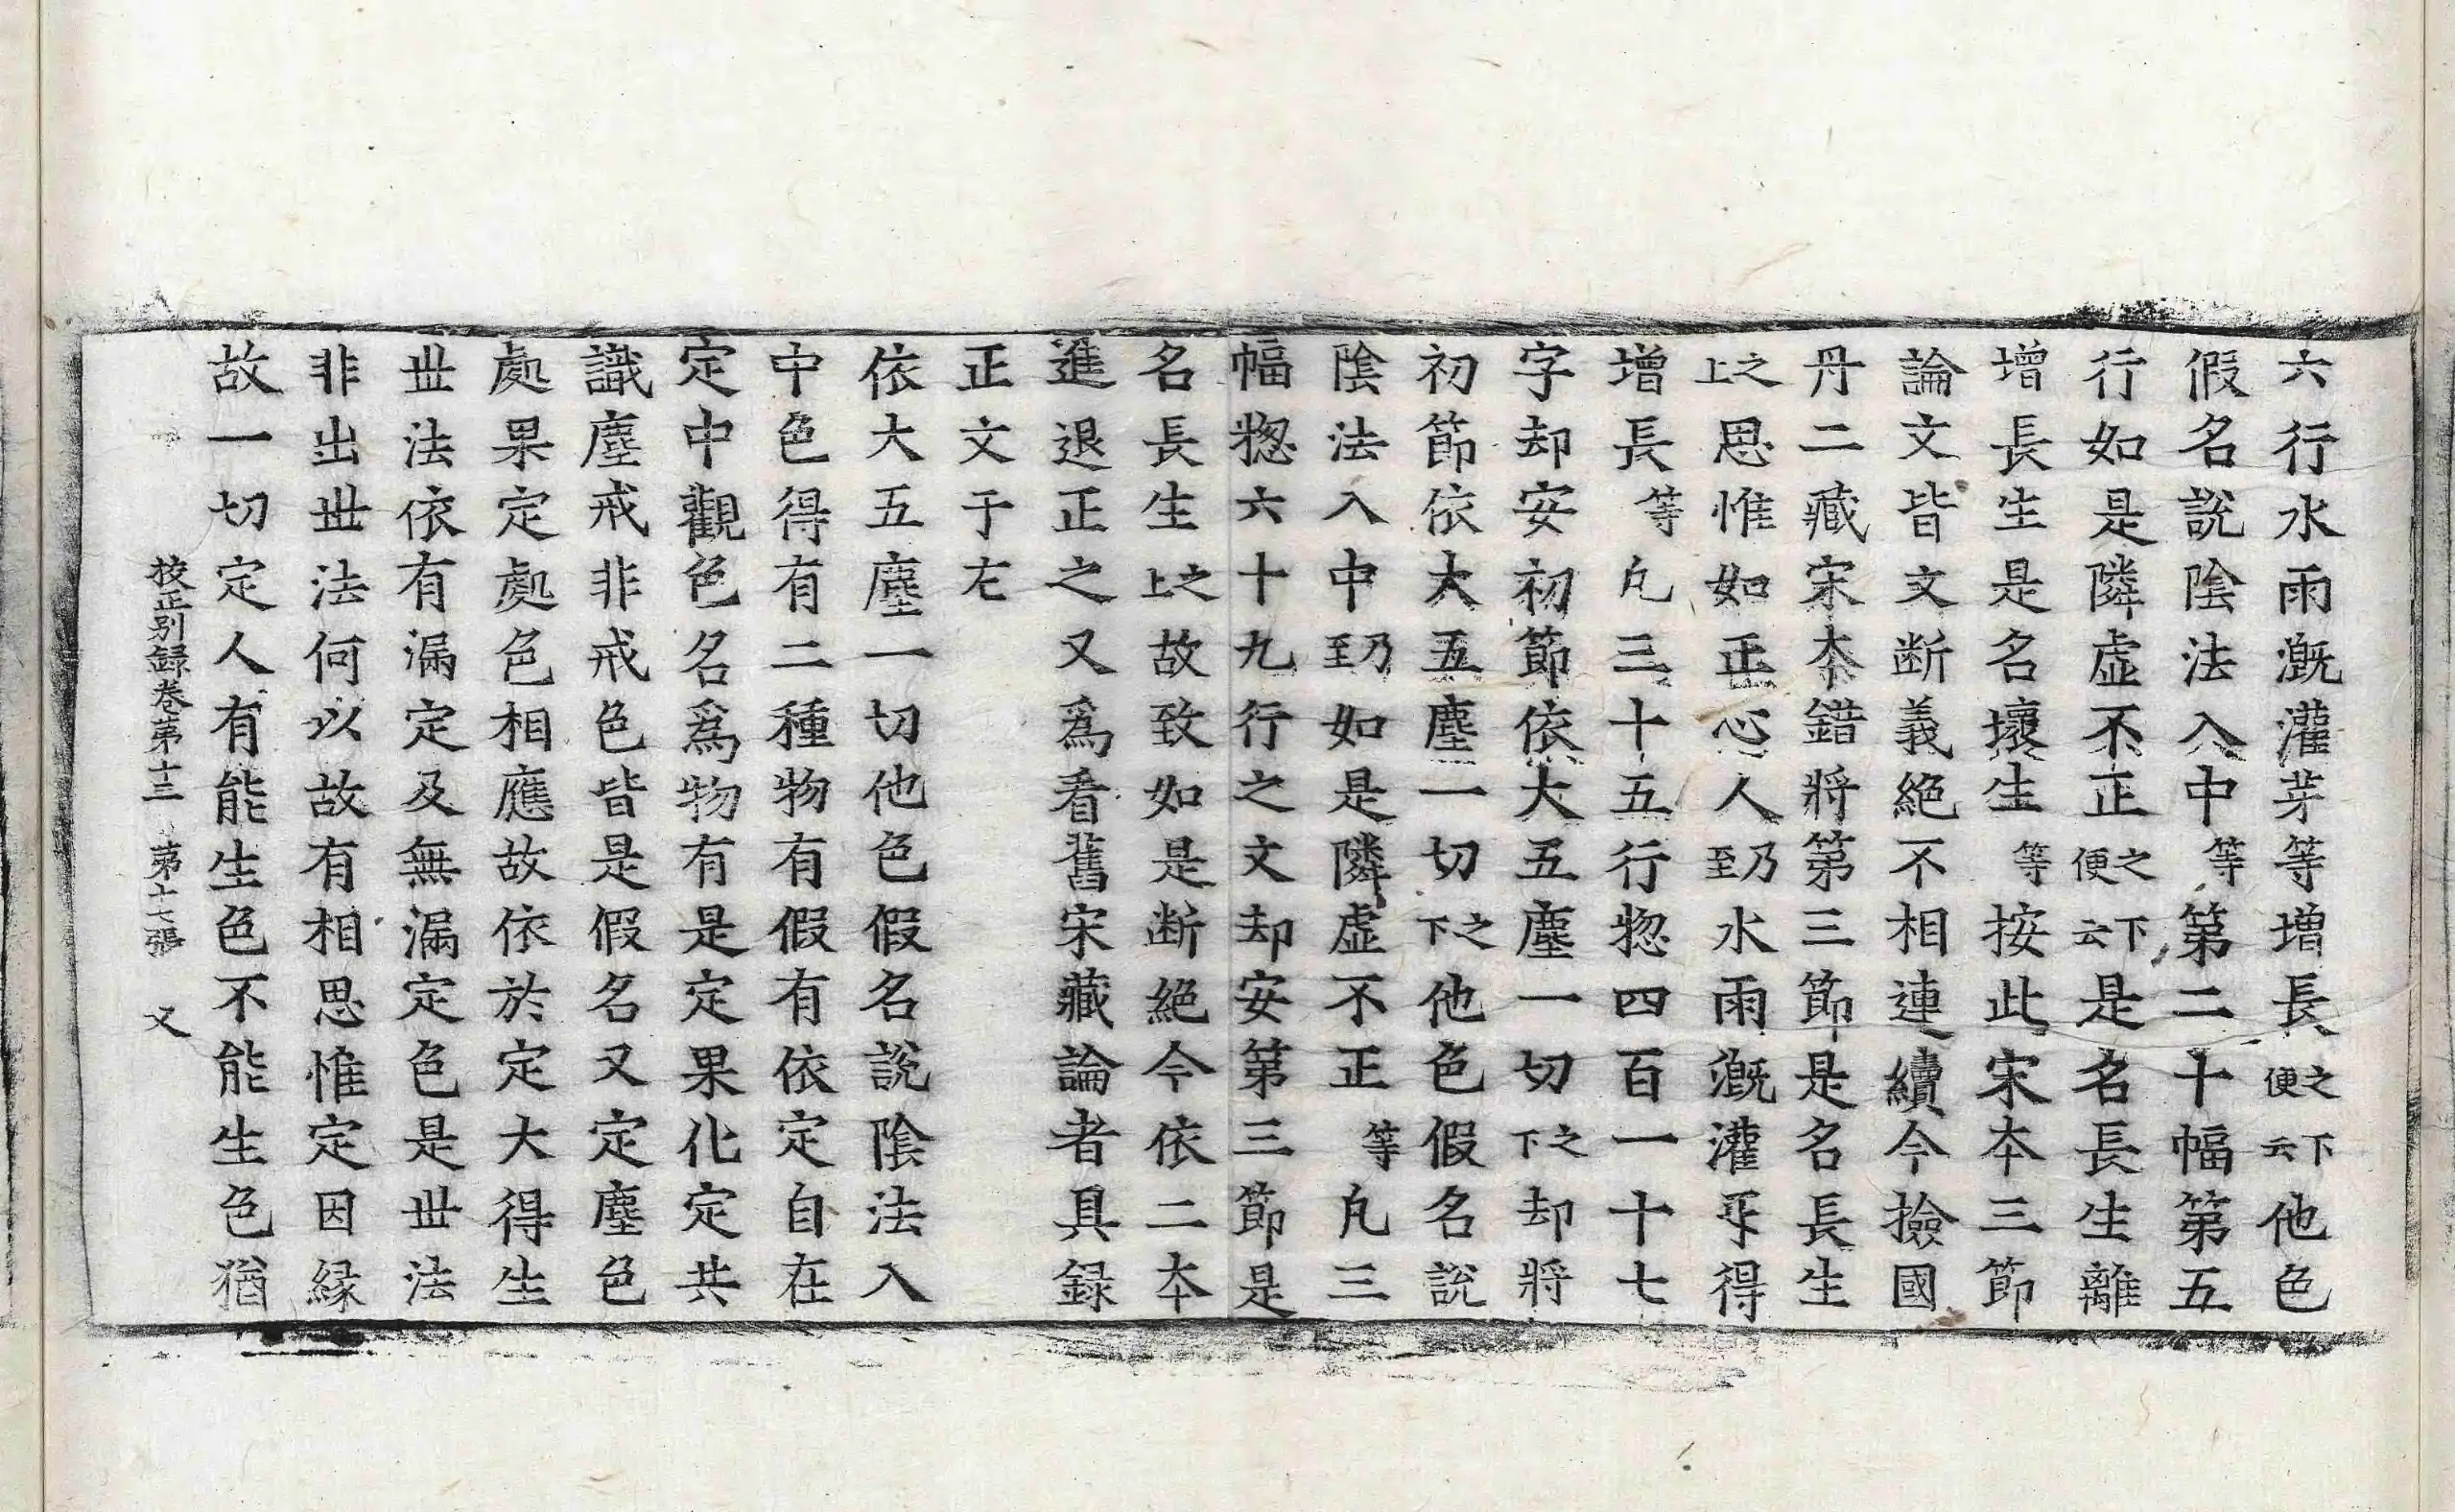 六行水雨漑灌芽等增長之下便云他色
假名說陰法入中等第二十幅第五
行如是隣虛不正之下便云是名長生離
增長生是名壞生等按此宋本三節
論文皆文断義絕不相連續今撿國
丹二藏宋本錯將第三節是名長生
之上思惟如正心人乃至水雨漑灌乎得
增長等凡三十五行惣四百一十七
字却安初節依大五塵一切之下却將
初節依大五塵一切之下他色假名說
陰法入中乃至如是隣虛不正等凡三
幅惣六十九行之文却安第三節是
名長生之上故致如是断絕今依二本
進退正之又爲看舊宋藏論者具録
正文于左
依大五塵一切他色假名說陰法入
中色得有二種物有假有依定自在
定中觀色名爲物有是定果化定共
識塵戒非戒色皆是假名又定塵色
處果定處色相應故依於定大得生
丗法依有漏定及無漏定色是丗法
非出丗法何以故有相思惟定因縁
故一切定人有能生色不能生色猶
挍正别録卷第十三 第十七張 又